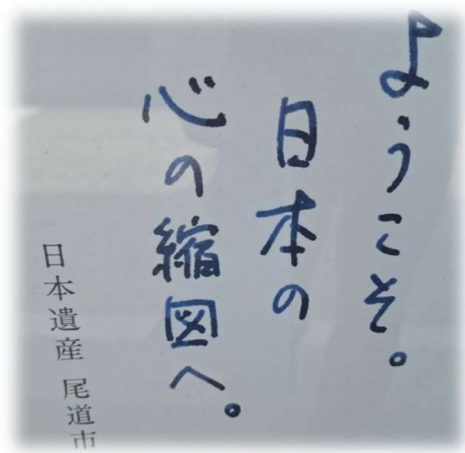 ようこそ。
日本の
心の縮図へ。
日本遺産 尾道市